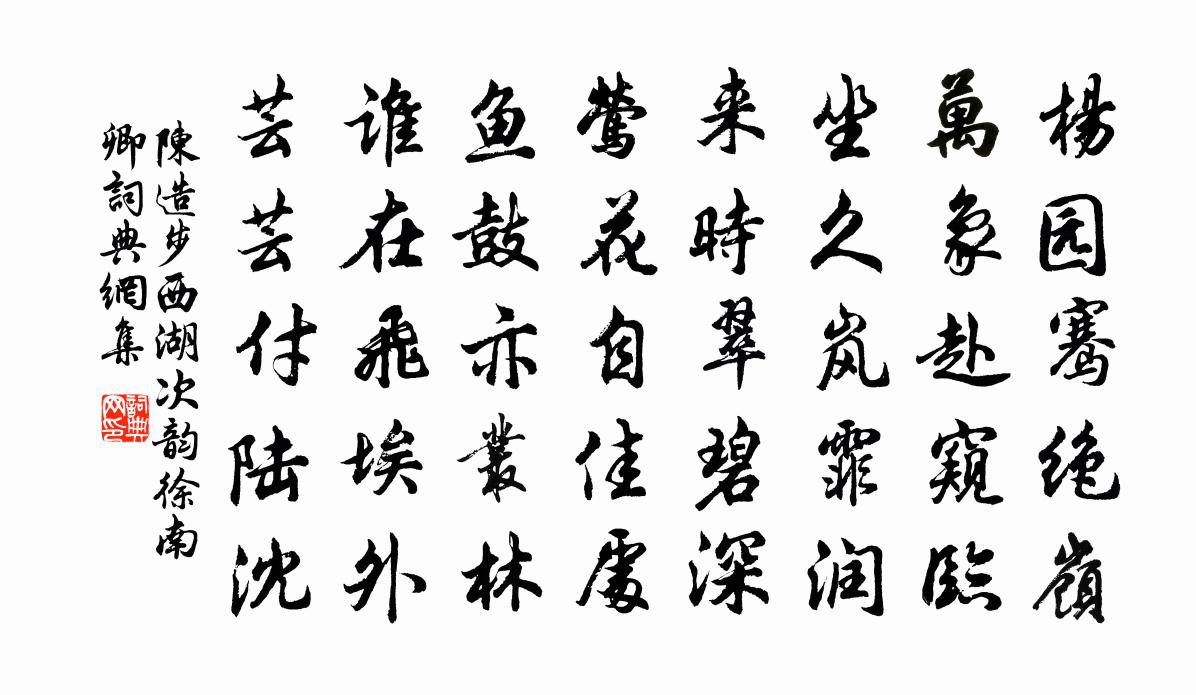 楊园骞绝嶺
萬象赴窺臨
坐久岚霏润
来時翠碧深
鶯花自佳處
鱼鼓亦叢林
谁在飛埃外
芸芸付陆沈
陳造步西湖次韵徐南
卿詞典網集
詞典网印